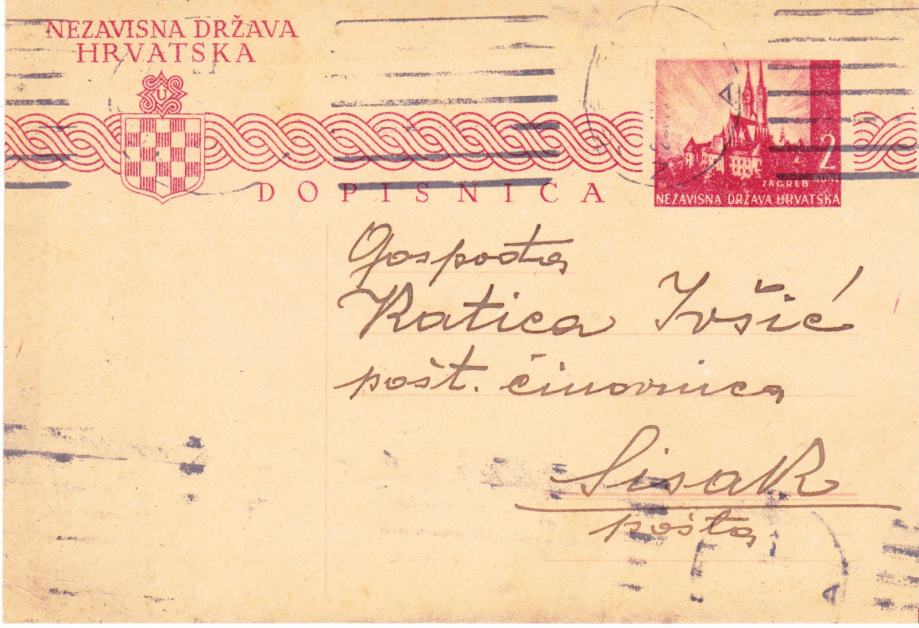 NEZAVISNA DRŽAVA
HRVATSKA
U
DOPISNICA
2
KUNE
ZAGREB
NEZAVISNA DRŽAVA HRVATSKA
Gospođa
Katica Ivšić
pošt. činovnica
Sisak
pošta